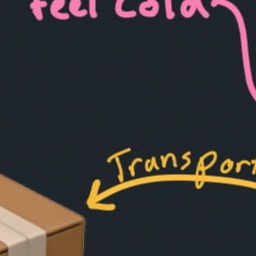 feel cold
Transport